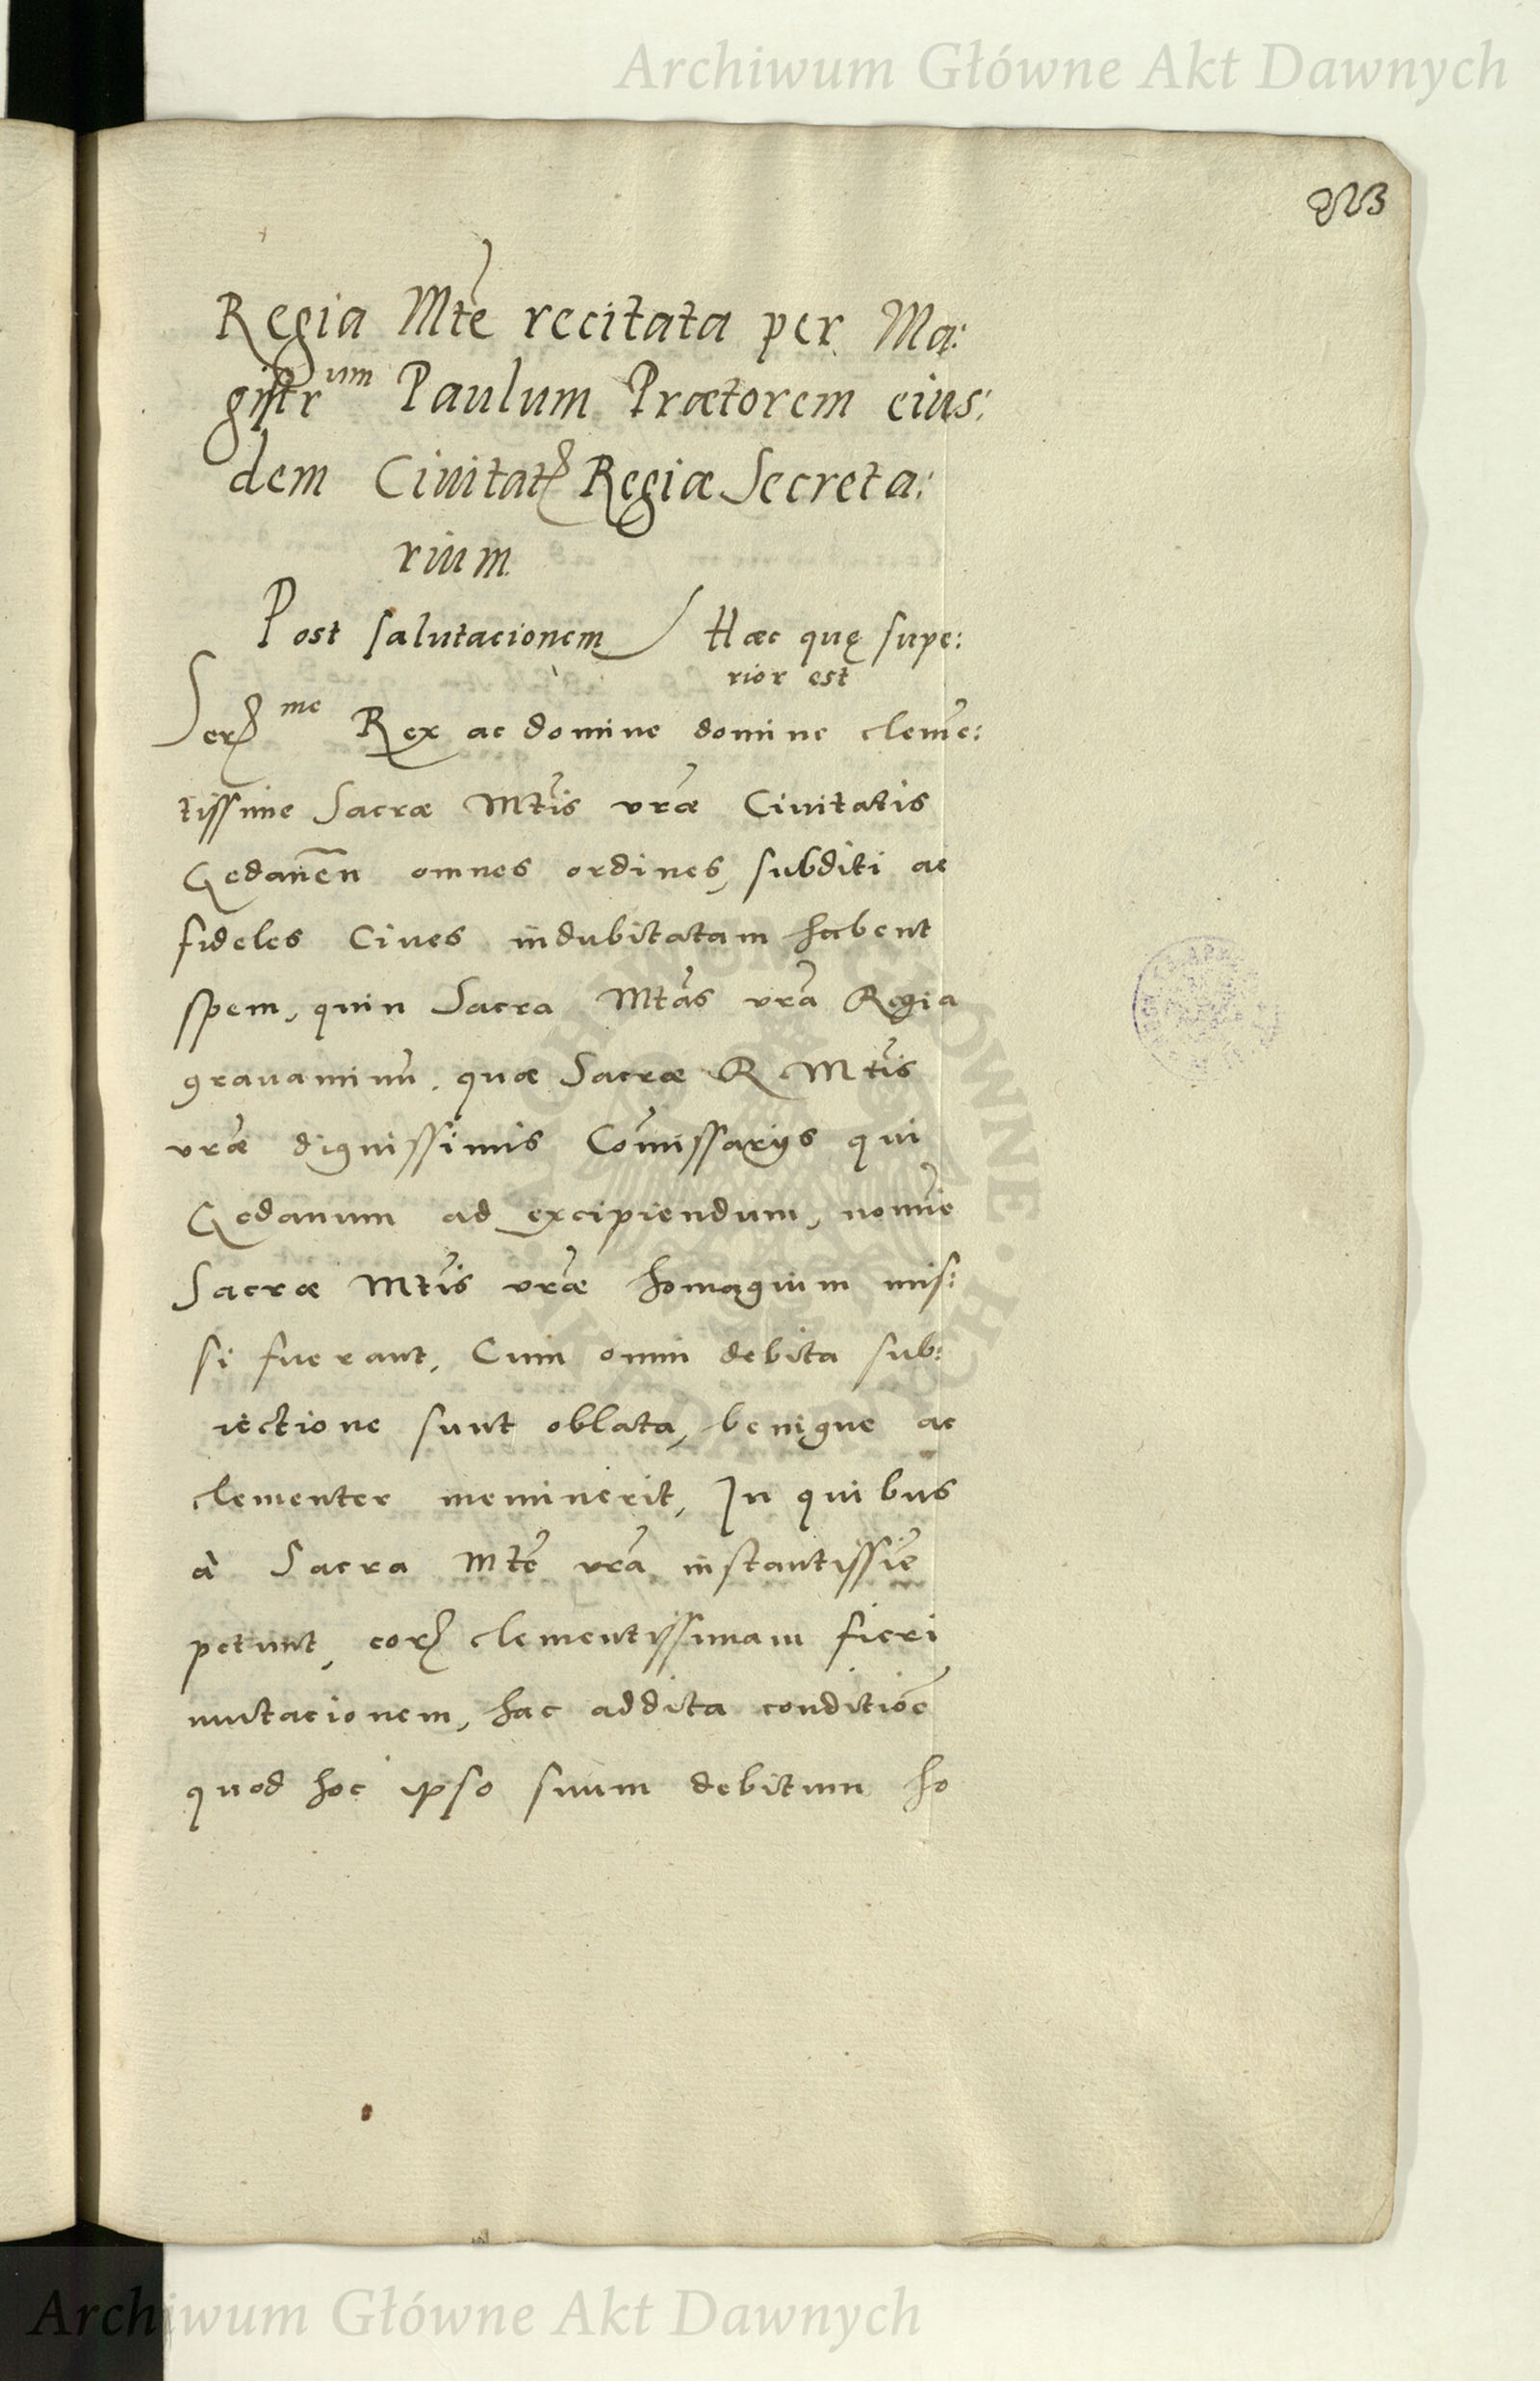 Archiwum Główne Akt Dawnych
Regia Mte recitata per Ma:
gistrum Paulum Prætorem eius:
dem Ciuitat Regiæ Secreta:
rium
Post salutacionem Hæc quę supe:
rior est
Ser me Rex ac domine domine cleme:
tissime Sacræ Mtis vræ Ciuitatis
Gedanen omnes ordines, subditi ac
fideles Ciues indubitatam habent
spem, quin Sacra Mtas vra Regia
grauaminu, quæ Sacræ R Mtis
vræ dignissimis Comissarijs qui
Gedanum ad excipiendum, nomie
Sacræ Mtis vræ homagium mis:
si fuerant, Cum omni debita sub:
iectione sunt oblata, benigne ac
clementer meminerit, In quibus
à Sacra Mte vra instantissie
petunt, eor clementissimam fieri
mutacionem, hac addita conditioe
quod hoc ipso suum debitum ho
Archiwum Główne Akt Dawnych